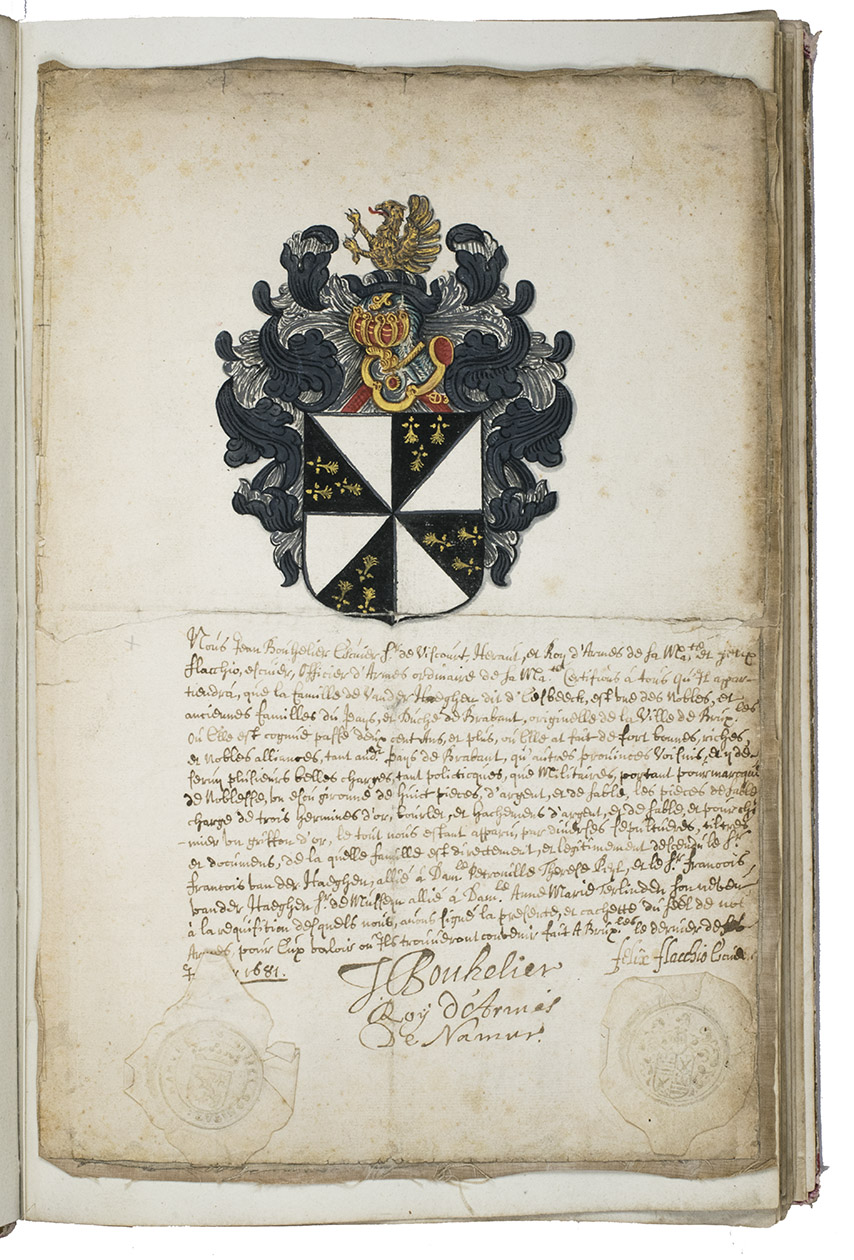 Nous Jean Bouhelier Escuier Sr. de Viscourt, Heraut, et Roy d'Armes de sa Ma.té et
Flacchio, escuier, Officier d'Armes ordinaire de sa Ma.té Certifions à tous qu'Il appar-
tiendra, que la famille de Vander Haeghen dit d'Elsbeeck, est une des Nobles, et
anciennes familles du Pays, et Duché de Brabant, originelle de la Ville de Brux.les
Où Elle est cognue passé deux cent ans, et plus, où elle at fait de fort bonnes, riches
et Nobles alliances, tant audt. Pays de Brabant, qu'autres provinces Voisins, et y de-
servy plusieurs belles charges, tant politicques, que Militaires, portant pour marcque
de Noblesse, un escu gironné de huict pieces, d'argent, et de sable, les pieces de sable
chargé de trois hermines d'or, bourlet, et hachemens d'argent, et de sable, et pour ci-
mier un griffon d'or, le tout nous estant apparu, par diverses sepultures, tiltres
et documens, de la quelle famille est directement, et legitimement descendu le Sr.
François van der Haeghen, allié à Dam.le Petronille Therese et le Sr. François
vander Haeghen Sr. de Mussem allié à Dam.le Anne Marie Terlinden son neveu
à la requisition desquels nous, avons signé la presente, et cachetté du seel de nos
Armes pour Eux valoir où Ils trouveront convenir fait A Brux.les le dernier de
1681.
Felix Flacchio Escuier
J Bouhelier
Roy d'Armes
De Namur.